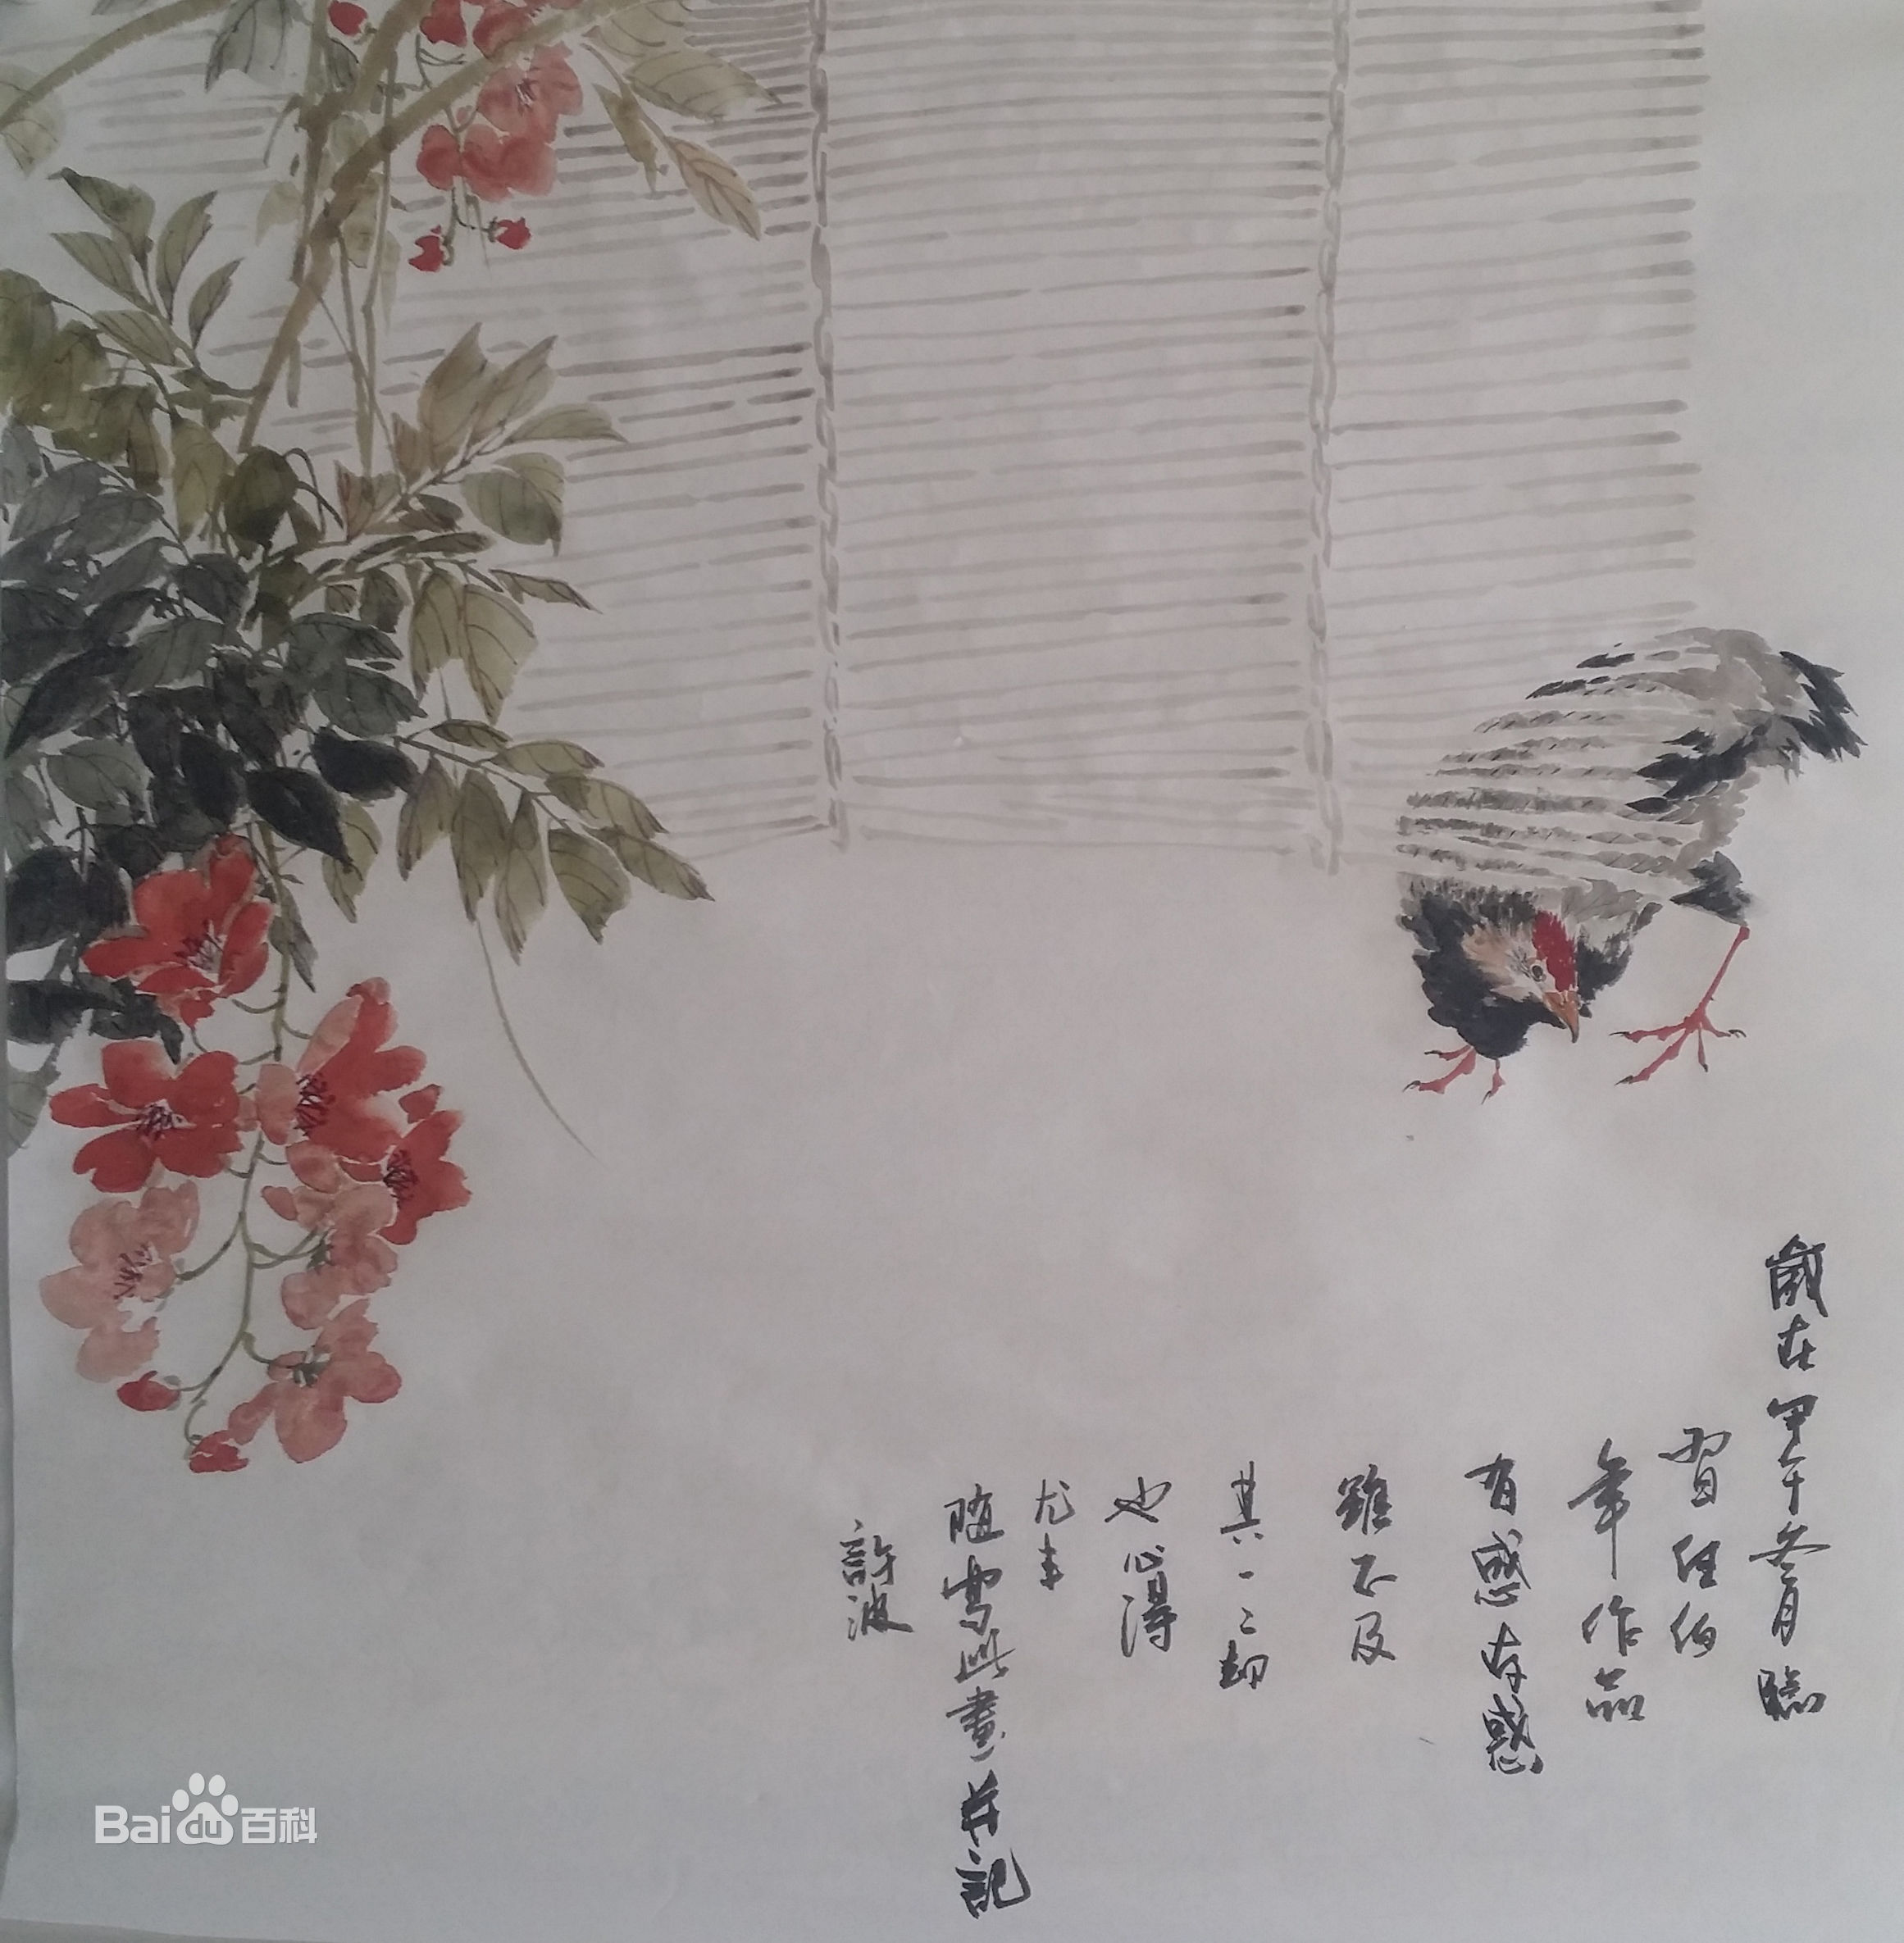 歲在甲午冬月臨
習任伯
年作品
有感有惑
雖不及
其一二却
也心得
尤丰
隨寫此畫并記
許波
Bai du 百科